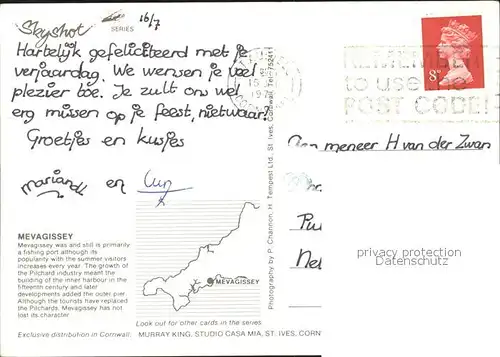 Skyshot SERIES 16/7
Hartelijk gefeliciteerd met je
verjaardag. We wensen je veel
plezier toe. Je zult ons wel
erg missen op je feest, nietwaar!
Groetjes en kusjes
en
REMEMBER
to use the
POST CODE!
8P
Aan meneer H van der Zwan
privacy protection
Datenschutz
MEVAGISSEY
Mevagissey was and still is primarily
a fishing port although its
popularity with the summer visitors
increases every year. The growth of
the Pilchard industry meant the
building of the inner harbour in the
fifteenth century and later
developments added the outer pier.
Although the tourists have replaced
the Pilchards. Mevagissey has not
lost its character.
MEVAGISSEY
Look out for other cards in the series
Exclusive distribution in Cornwall: MURRAY KING, STUDIO CASA MIA, ST. IVES, CORN
Photography by P. Channon, H. Tempest Ltd., St. Ives, Cornwall. Tel: 752411